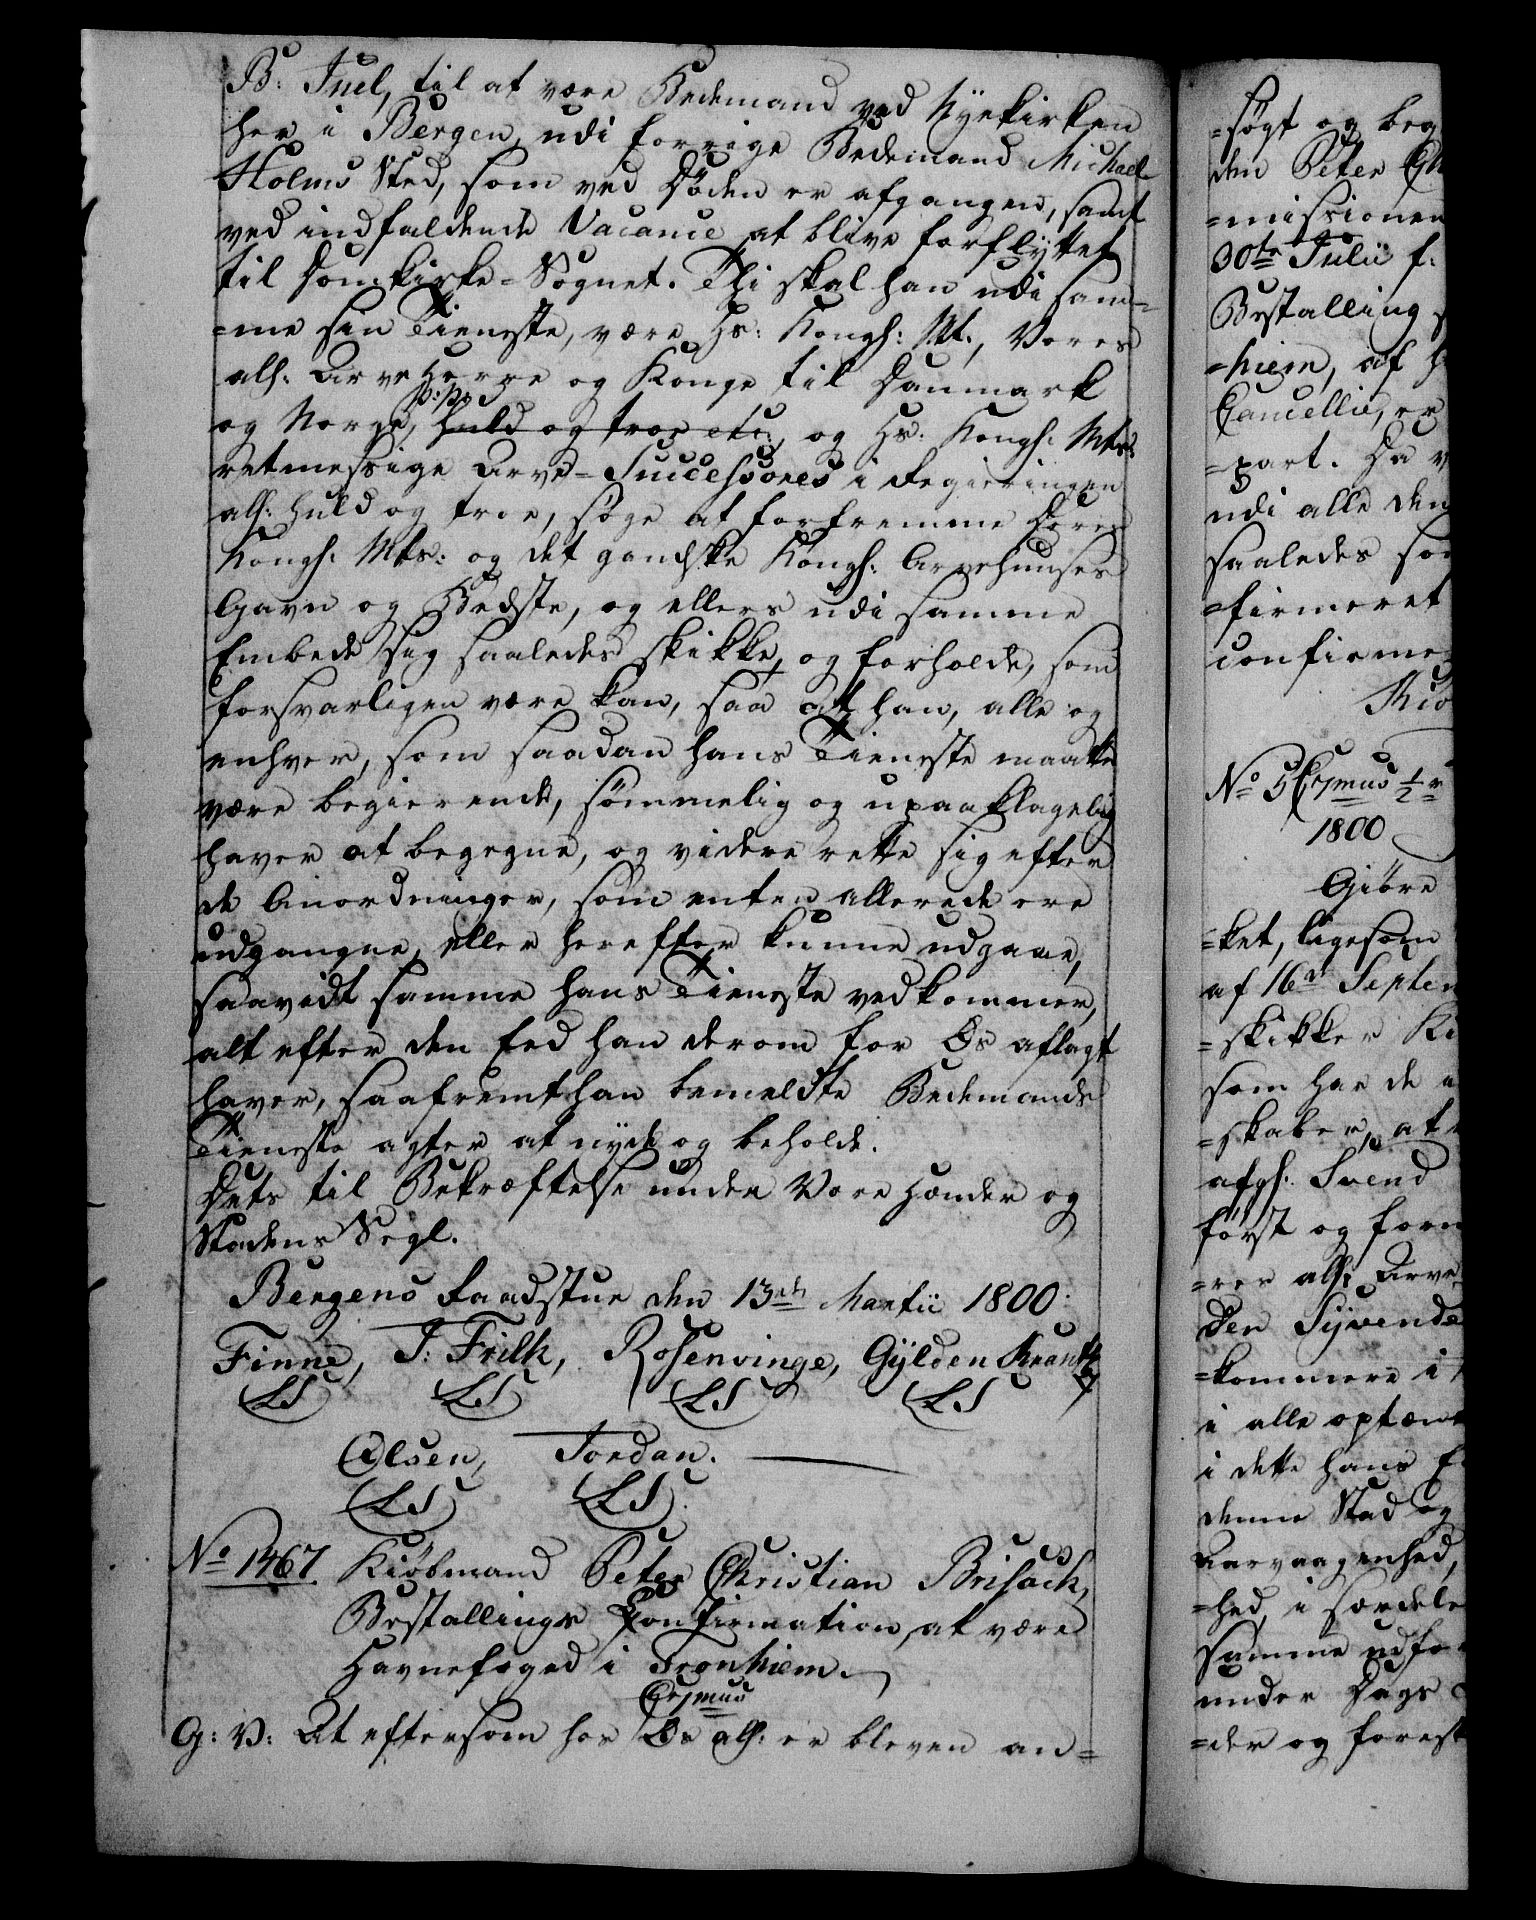 B: Juel, til at være Bedemand ved Nyekirken
her i Bergen, udi forrige Bedemand Michael
Holms Sted, som ved Døden er afgangen, samt
ved indfaldende Vacance at blive forflyttet
til Domkirke-Sognet. Thi skal han udi sam=
=me sin Tieneste, være Hs: Kongl: Mt., Vores
all: Arve Herre og Konge til Danmark
p: pp
og Norge, huld og troe etc:, og Hs: Kongl: Mts
retmessige Arve-Successores i Regieringen
all: huld og troe, søge at forfremme Deres
Kongl: Mts: og det gandske Kongl: Arvehuuses
Gavn og Bedste, og ellers udi samme
Embede sig saaledes skikke, og forholde, som
forsvarligen være kan, saa at han, alle og
enhver, som saadan hans Tieneste maatte
være begierende, sømmelig og upaaklagelig
haver at begegne, og videre rette sig efter
de Anordninger, som enten allerede ere
udgangne, eller herefter kunne udgaae,
saavidt samme hans Tieneste vedkommer,
alt efter den Eed han derom for Os aflagt
haver, saafremt han bemeldte Bedemands
Tieneste agter at nyde og beholde.
Dets til Bekræftelse under Vore Hænder og
Stadens Segl.
Bergens Raadstue den 13de Martii 1800.
Finne, J: Frilh, Rosenvinge, Gÿlden Krantz
LS LS LS LS
Olsen, Jordan.
LS LS
No 1467. Kiøbmand Peter Christian Brisach,
Bestallings Confirmation, at være
Havnefoged i Tronhiem.
C7mus
G: V: At eftersom hos Os all: er bleven an=
=søgt og beg
den Peter Ch
=missionen
30te Julii f:
Bestalling
=hiem, af H
Cancellie, er
=part. Da v
udi alle den
saaledes som
=firmeret
confirme
Kiø
No 5 C7mus 1/2 r
1800
Giøre
=ket, ligesom
af 16de Septem
=skikker Ki
som har de
=skaber, at
afgl: Svend
først og frem
=res all: Arve
den Syvende
=kommere i
i alle optæn
i dette hans E
denne Stad og
Aarvaagenhed,
=hed, i særdele
samme udfor
under Dags
=der og forest